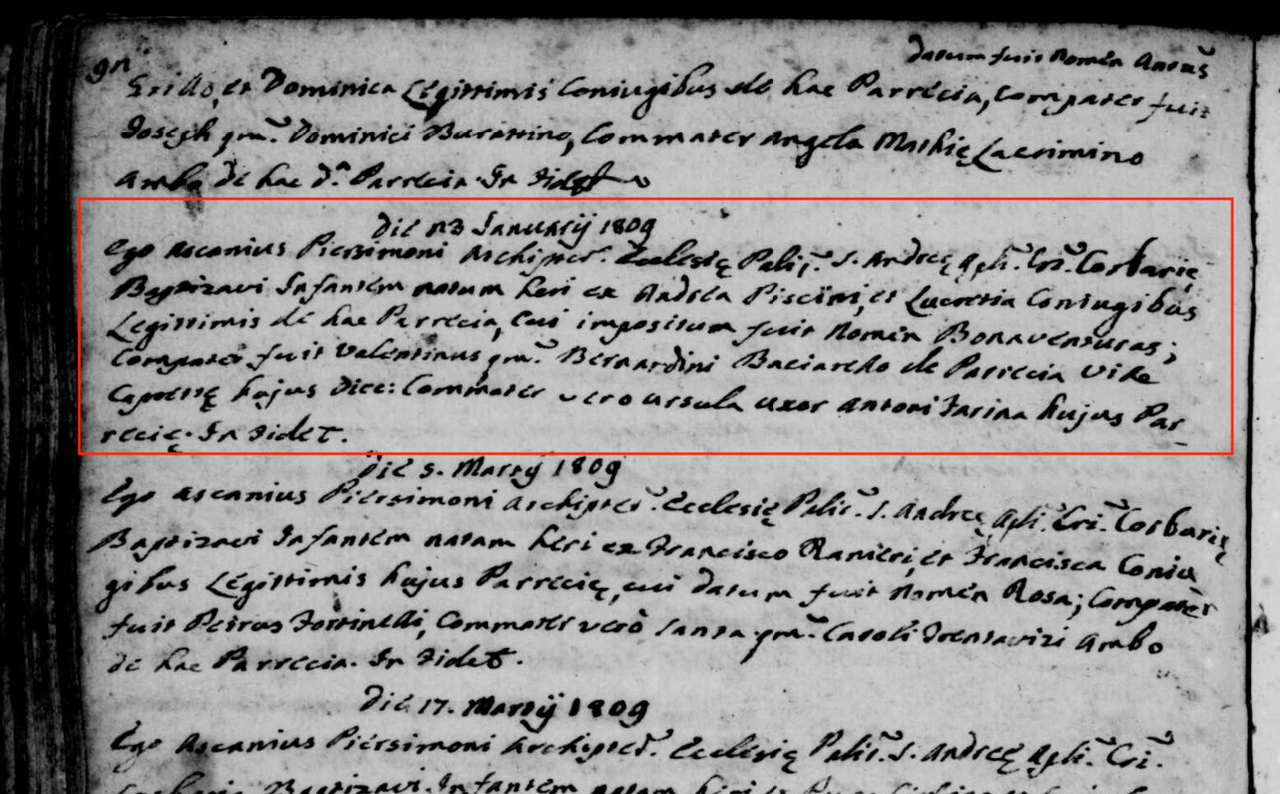 datum fuit Nomen
et Dominica Legittimis Coniugibus de hac Parrecia, Compater fuit
Joseph qm̃. Dominici Burattino, Commater Angela Mathię Lacrimino
Ambo de hac d.ª Parrecia. In Fidem
Die 23 Januarij 1809
Ego Ascanius Piersimoni Archipter̃. Ecclesię Pelis̃. S. Andreę Apli.̃ Cri.̃ Corbarię
Baptizavi Infantem natum heri ex Andrea Piscini, et Lucretia Coniugibus
Legittimis de hac Parrecia, cui impositum fuit Nomen Bonaventuras;
Compater fuit Valentinus qm̃. Bernardini Baciarello de Parrecia
hujus Dice: Commater vero Ursula uxor Antoni Farina hujus Par-
recię. In Fidem.
Die 5. Martij 1809
Ego Ascanius Piersimoni Archipter̃. Ecclesię Pelis̃. S. Andreę Apli.̃ Cri.̃ Corbarię
Baptizavi Infantem natam heri ex Francisco Ranieri, et Francisca Coniu
gibus Legittimis hujus Parrecię, cui datum fuit Nomen Rosa; Compater
fuit Petrus Fortinelli, Commater verò Santa qm̃. Caroli Ambo
de hac Parrecia. In Fidem.
Die 17. Martij 1809
Ego Ascanius Piersimoni Archipter̃. Ecclesię Pelis̃. S. Andreę Apli.̃ Cri.̃
Baptizavi Infantem natam heri